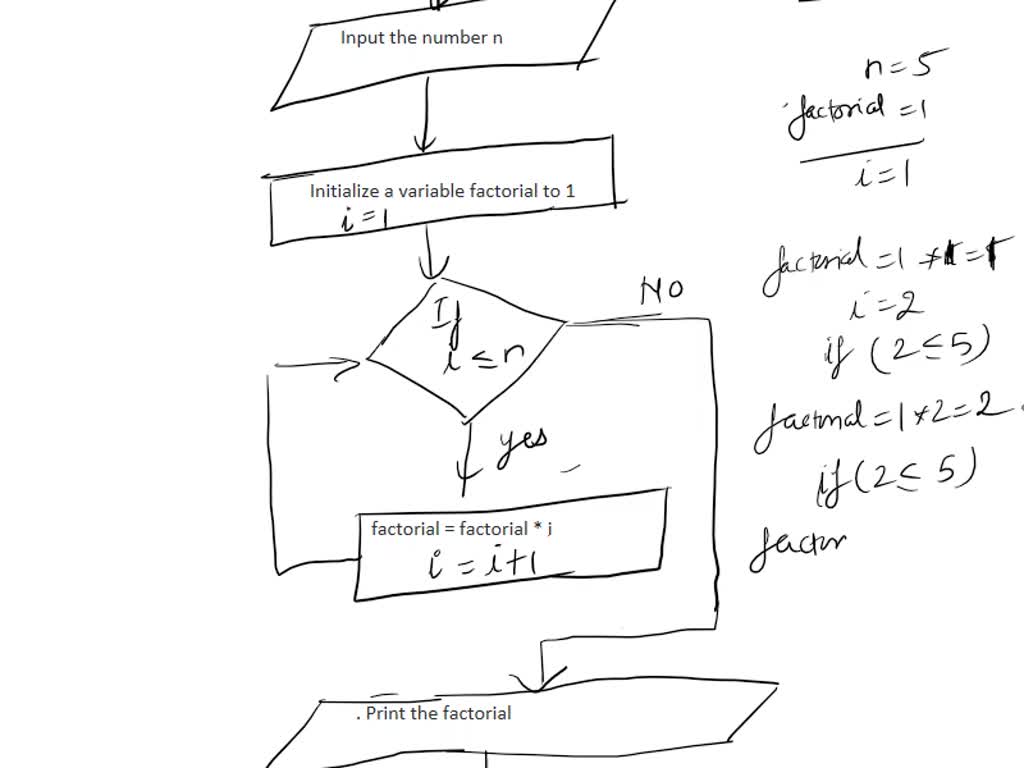 Input the number n
Initialize a variable factorial to 1
i = 1
If
i ≤ n
NO
yes
factorial = factorial * i
i = i+1
. Print the factorial
n = 5
factorial = 1
i = 1
factorial = 1 * 1 = 1
i = 2
if (2 ≤ 5)
factorial = 1 * 2 = 2
if (2 ≤ 5)
factor